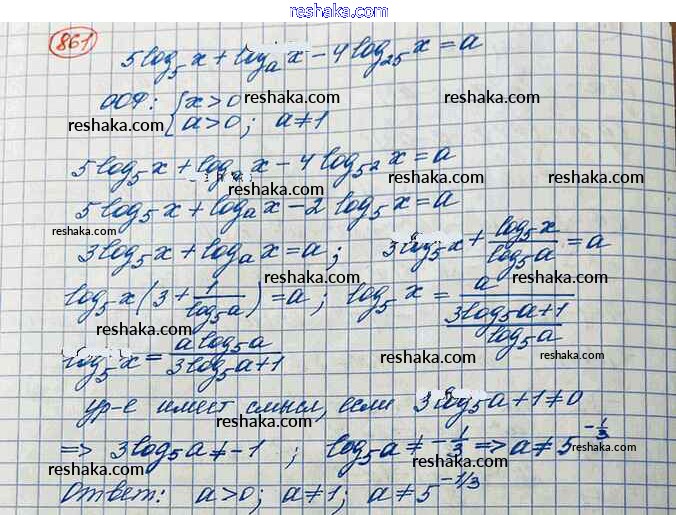 www.reshaka.com
861
5log₅x + logₐx - 4log₂₅x = a
ООФ: { x > 0 reshaka.com reshaka.com
reshaka.com { a > 0; a ≠ 1
5log₅x + logₐx - 4log₅²x = a
reshaka.com reshaka.com
5log₅x + logₐx - 2log₅x = a
reshaka.com
3log₅x + logₐx = a; 3log₅x + log₅x/log₅a = a
reshaka.com reshaka.com
log₅x(3 + 1/log₅a) = a; log₅x = a/((3log₅a+1)/log₅a)
reshaka.com
log₅x = a log₅a/(3log₅a+1) reshaka.com reshaka.com
ур-е имеет смысл, если 3log₅a + 1 ≠ 0
reshaka.com reshaka.com
=> 3log₅a ≠ -1; log₅a ≠ -1/3 => a ≠ 5^(-1/3)
reshaka.com reshaka.com reshaka.com
Ответ: a > 0; a ≠ 1; a ≠ 5^(-1/3)
reshaka.com reshaka.com